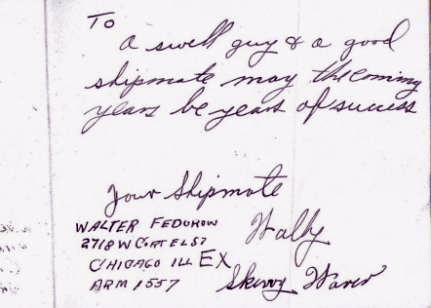 To
a swell guy & a good
shipmate may the coming
years be years of success
Your Shipmate
Wally
WALTER FEDOROW
2718 W CORTEL ST
CHICAGO ILL EX
ARM 1557
Waver